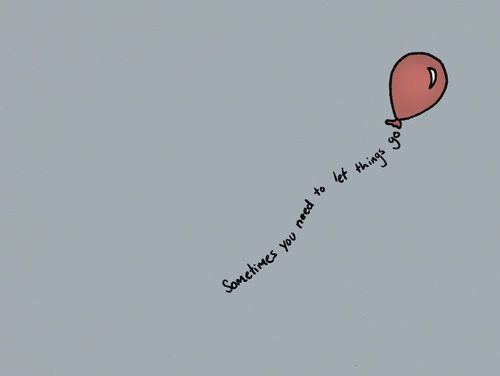 Sometimes you need to let things go